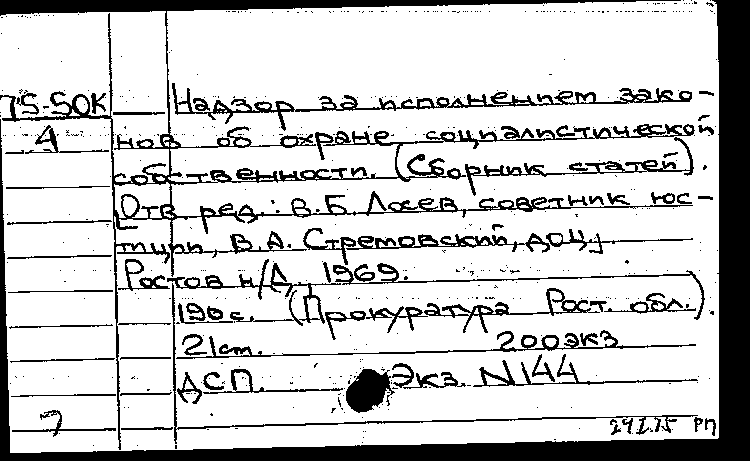 75-50К
4
Надзор за исполнением зако-
нов об охране социалистической
собственности. (Сборник статей).
[Отв. ред.: В.Б. Лосев, советник юс-
тиции, В.А. Стремовский, доц.]
Ростов н/Д, 1969.
190 с. (Прокуратура Рост. обл.).
21 см. 200 экз.
ДСП. Экз. N 144
7
29 I.75 РП